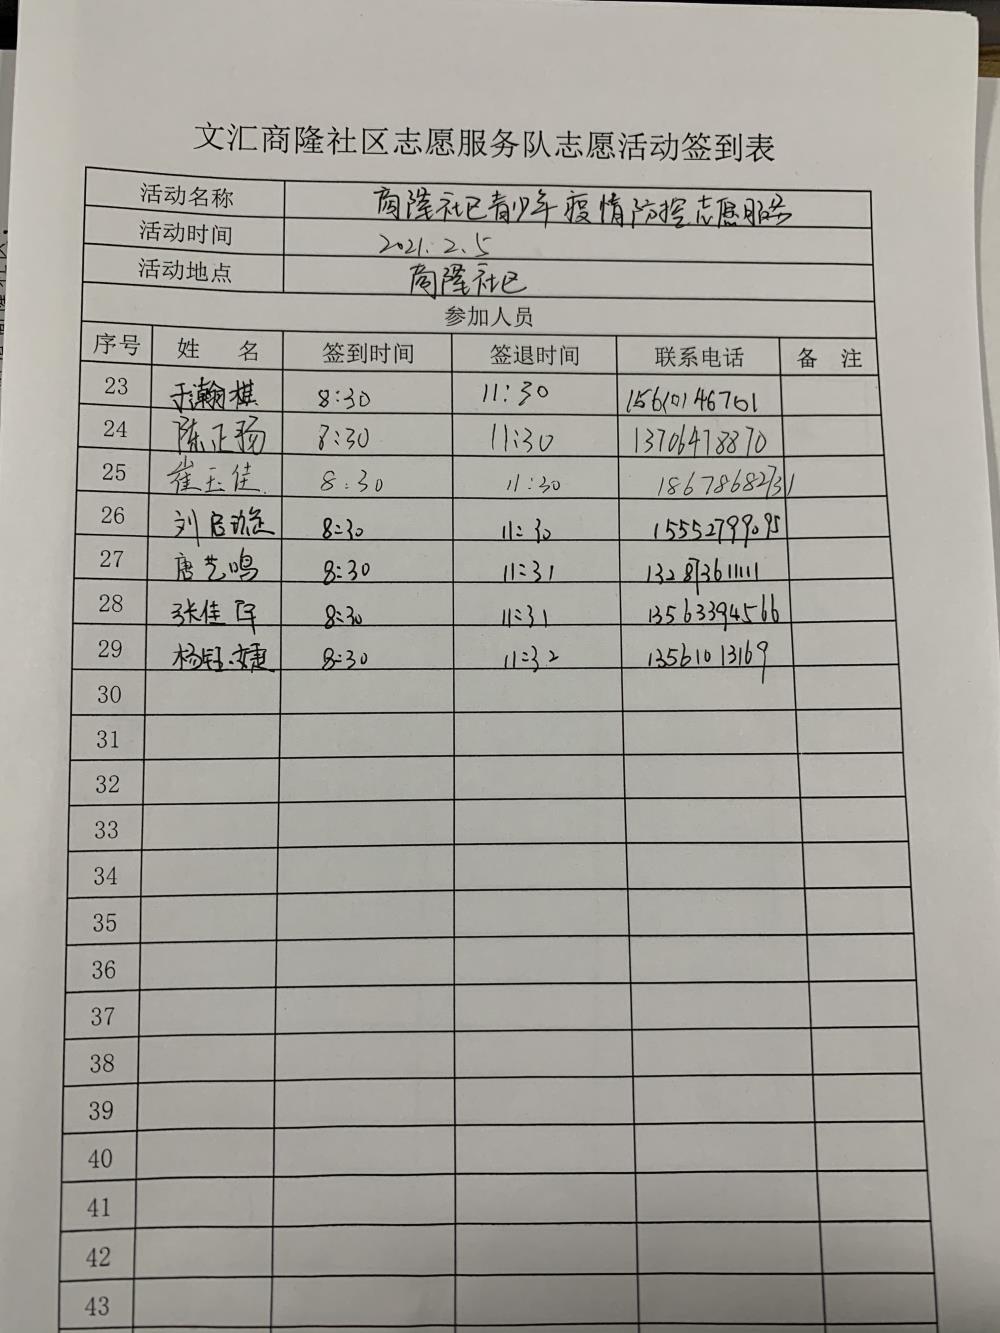 文汇商隆社区志愿服务队志愿活动签到表
活动名称 商隆社区青少年疫情防控志愿服务
活动时间 2021.2.5
活动地点 商隆社区
参加人员
序号 姓 名 签到时间 签退时间 联系电话 备 注
23 于瀚棋 8:30 11:30 15610146701
24 陈正扬 8:30 11:30 13706478870
25 崔玉佳 8:30 11:30 18678682731
26 刘启 8:30 11:30 15552799095
27 唐艺鸣 8:30 11:31 13287361111
28 张佳 8:30 11:31 13563394566
29 杨钰婕 8:30 11:32 13561013169
30
31
32
33
34
35
36
37
38
39
40
41
42
43